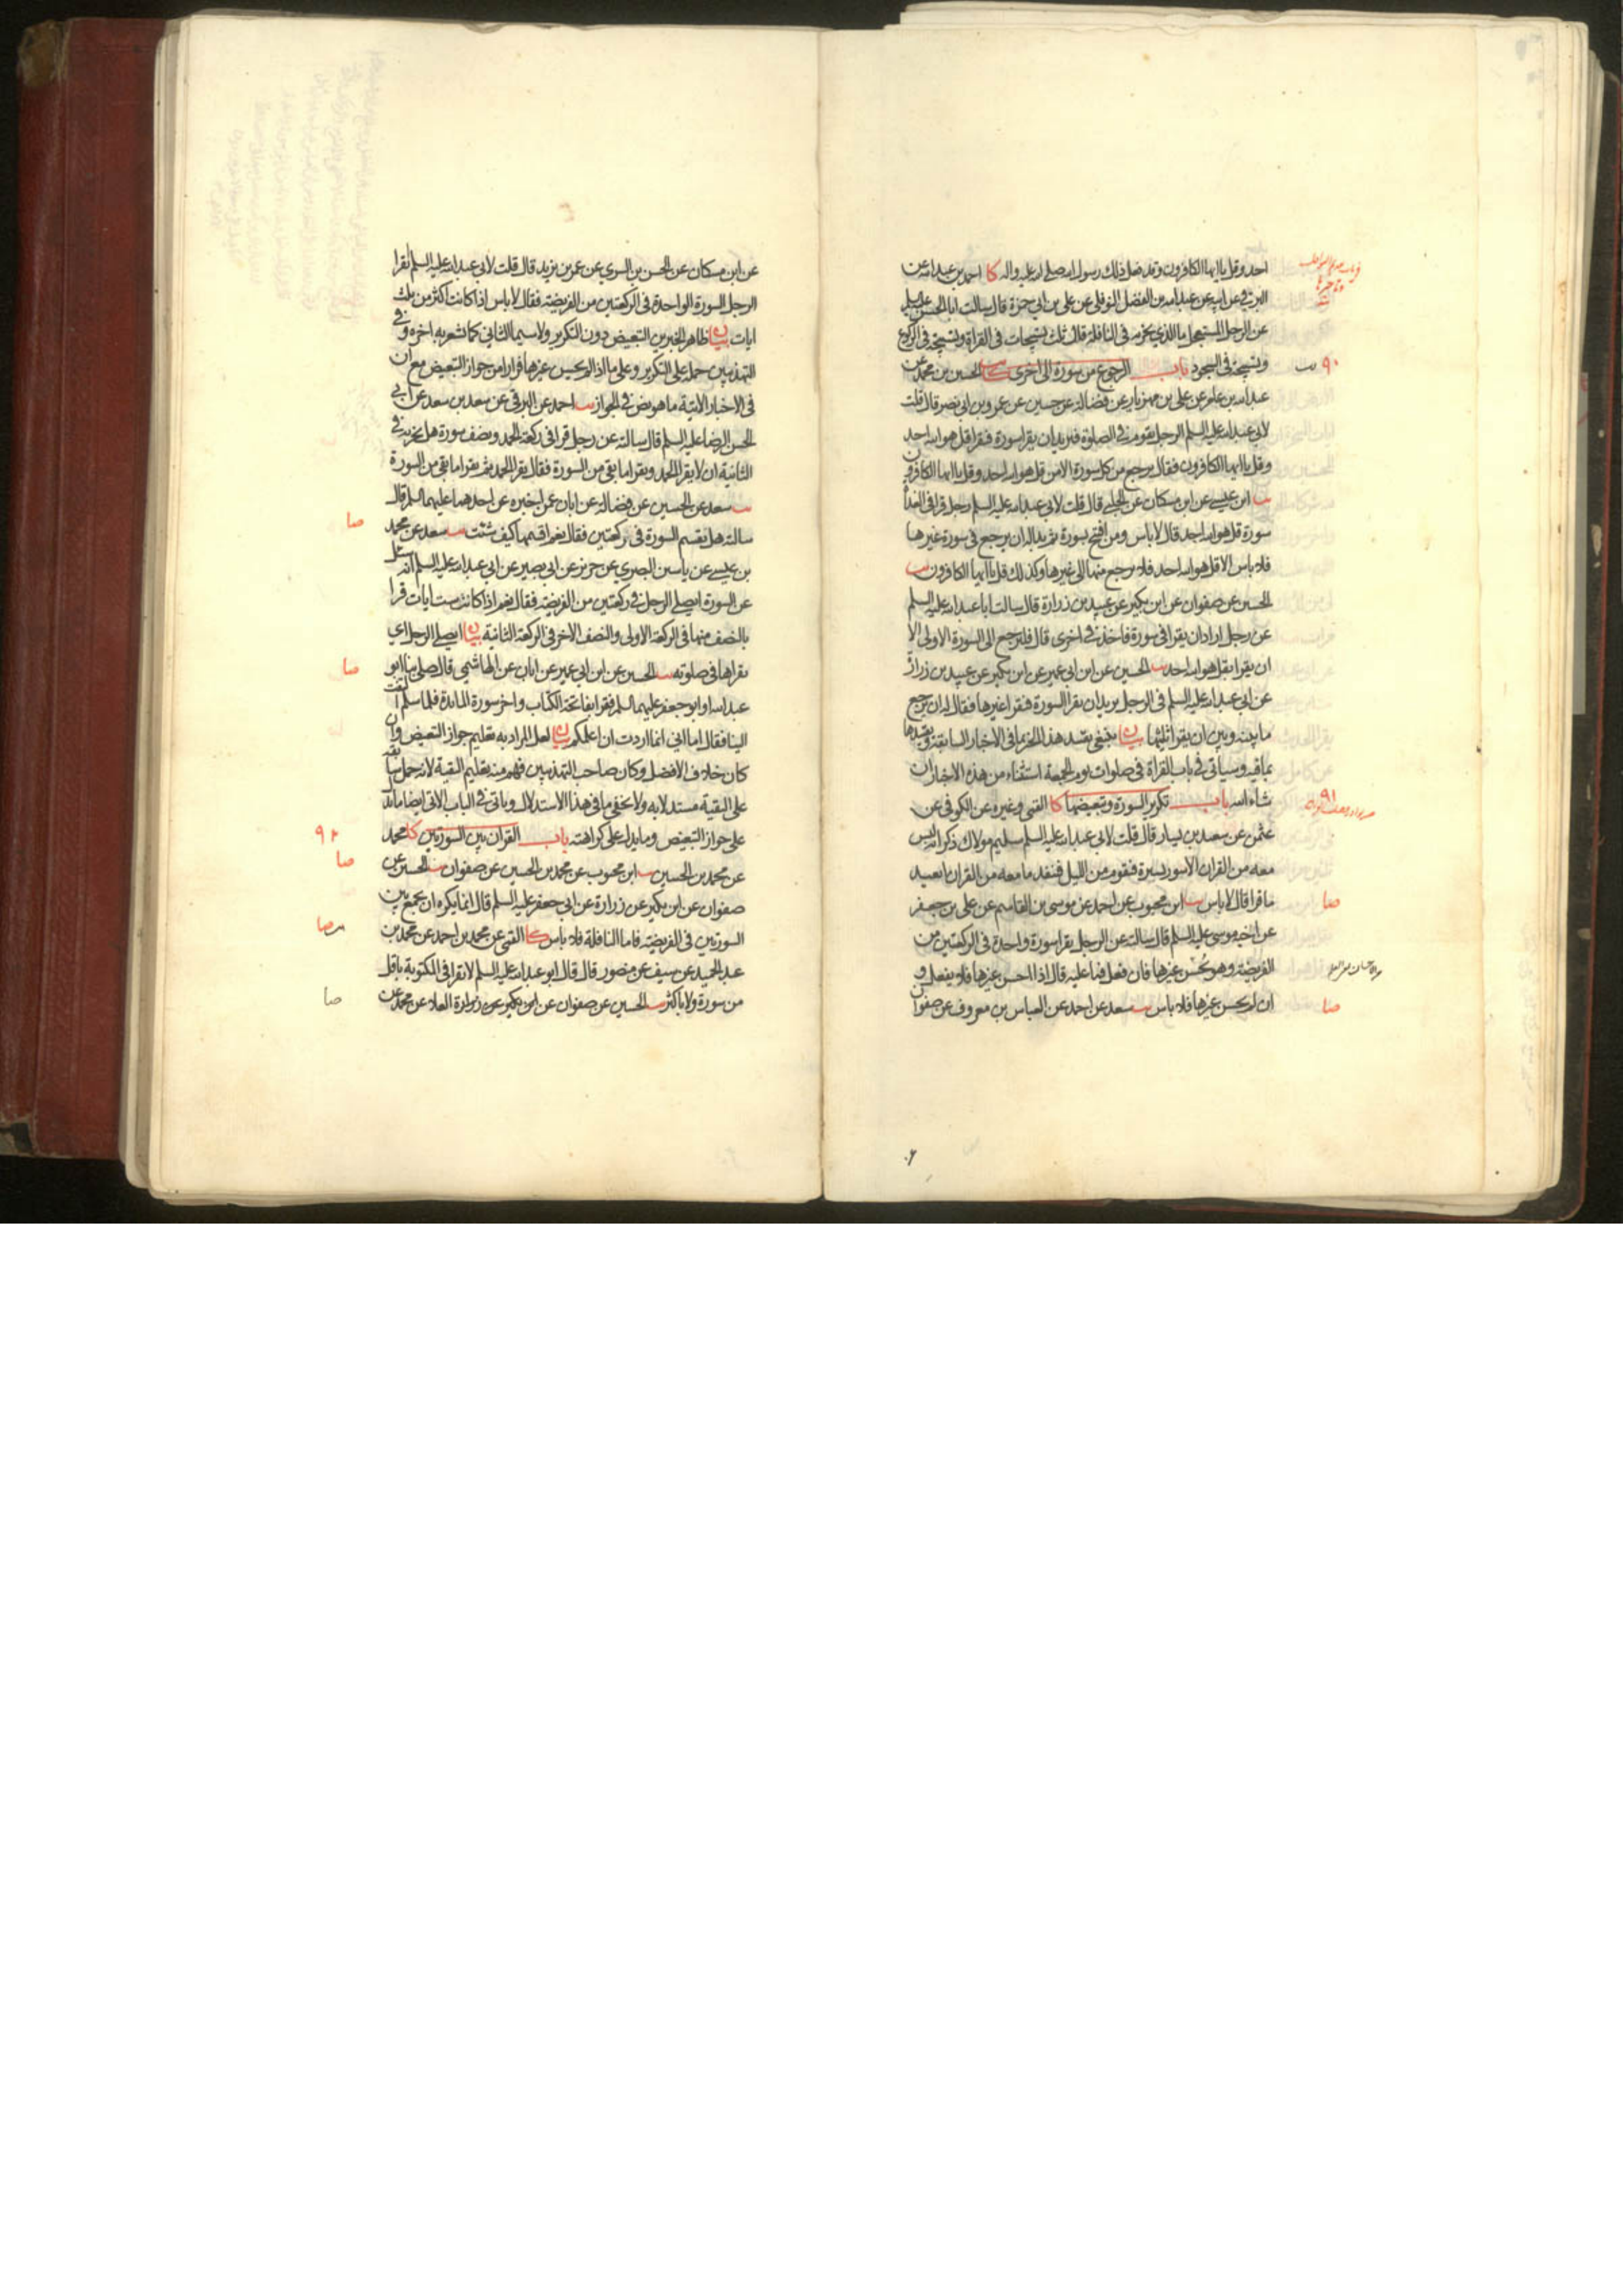 احد وقل يا ايها الكافرون وقد فعل ذلك رسول الله صلى الله عليه واله كا احمد بن عبدالله عن
البرقي عن ابيه عن عبدالله بن الفضل النوفلي عن علي بن ابي حمزة قال سالت ابا الحسن عليه السلم
عن الرجل المستعجل ما الذي يجزيه في النافلة قال ثلث تسبيحات في القراءة وتسبيحة في الركوع
وتسبيحة في السجود باب الرجوع من سورة الى اخرى كا الحسين بن محمد عن
۹۰
عبدالله بن عامر عن علي بن مهزيار عن فضالة عن حسين عن عمرو بن ابي نصر قال قلت
لابي عبدالله عليه السلم الرجل يقوم في الصلوة فيريد ان يقرا سورة فيقرا قل هو الله احد
وقل يا ايها الكافرون فقال يرجع من كل سورة الا من قل هو الله احد وقل يا ايها الكافرون
يب ابن عيسى عن ابن مسكان عن الحلبي قال قلت لابي عبدالله عليه السلم رجل قرا في الغداة
سورة قل هو الله احد قال لا باس ومن افتتح بسورة ثم بدا له ان يرجع في سورة غيرها
فلا باس الا قل هو الله احد فلا يرجع منها الى غيرها وكذلك قل يا ايها الكافرون يب
الحسين عن صفوان عن ابن بكير عن عبيد بن زرارة قال سالت ابا عبدالله عليه السلم
عن رجل اراد ان يقرا في سورة فاخذ في اخرى قال فليرجع الى السورة الاولى الا
ان يقرا بقل هو الله احد يب الحسين عن ابن ابي عمير عن ابن بكير عن عبيد بن زرارة
عن ابي عبدالله عليه السلم في الرجل يريد ان يقرا السورة فيقرا غيرها فقال له ان يرجع
ما بينه وبين ان يقرا ثلثيها بيان ينبغي تقييد هذا الخبر بما في الاخبار السابقة وتقييدها
بما فيه وسياتي في باب القراءة في صلوات يوم الجمعة استثناء من هذه الاخبار ان
شاء الله باب تكرير السورة وتبعيضها كا القمي وغيره عن الكوفي عن
۹۱
عثمن عن سعيد بن يسار قال قلت لابي عبدالله عليه السلم سليم مولاك ذكر انه ليس
معه من القران الا سورة يسيرة فيقوم من الليل فينفد ما معه من القران ايعيد
ما قرا قال لا باس يب ابن محبوب عن احمد عن موسى بن القاسم عن علي بن جعفر
صا
عن اخيه موسى عليه السلم قال سالته عن الرجل يقرا سورة واحدة في الركعتين من
الفريضة وهو يحسن غيرها فان فعل فما عليه قال اذا احسن غيرها فلا يفعل و
ان لم يحسن غيرها فلا باس يب سعد عن احمد عن العباس بن معروف عن صفوان
صا
عن ابن مسكان عن الحسن بن السري عن عمر بن يزيد قال قلت لابي عبدالله عليه السلم ايقرا
الرجل السورة الواحدة في الركعتين من الفريضة فقال لا باس اذا كانت اكثر من ثلث
ايات بيان ظاهر الخبرين التبعيض دون التكرير ولا سيما الثاني كما تشعر به اخره وفي
التهذيبين حمله على التكرير وعلى ما اذا لم يحسن غيرها فرارا من جواز التبعيض مع ان
في الاخبار الاتية ما هو نص في الجواز يب احمد عن البرقي عن سعد بن سعد عن ابي
الحسن الرضا عليه السلم قال سالته عن رجل قرا في ركعة الحمد ونصف سورة هل يجزيه في
الثانية ان لا يقرا الحمد ويقرا ما بقي من السورة فقال يقرا الحمد ثم يقرا ما بقي من السورة
يب سعد عن الحسين عن فضالة عن ابان عمن اخبره عن احدهما عليهما السلم قال
سالته هل يقسم السورة في ركعتين فقال نعم اقسمها كيف شئت يب سعد عن محمد
صا
بن عيسى عن ياسين البصري عن حريز عن ابي بصير عن ابي عبدالله عليه السلم انه سئل
عن السورة ايصلي الرجل في ركعتين من الفريضة فقال نعم اذا كانت ست ايات قرا
بالنصف منها في الركعة الاولى والنصف الاخر في الركعة الثانية بيان ايصلي الرجل اي
يقراها في صلوته يب الحسين عن ابن ابي عمير عن ابان عن الهاشمي قال صلى بنا ابو
صا
عبدالله او ابو جعفر عليهما السلم فقرا بفاتحة الكتاب واخر سورة المائدة فلما سلم التفت
الينا فقال اما اني انما اردت ان اعلمكم بيان لعل المراد به تعليم جواز التبعيض وان
كان خلاف الافضل وكان صاحب التهذيبين فهم منه تعليم التقية لانه حمل سابقه
على التقية مستدلا به ولا يخفى ما في هذا الاستدلال وياتي في الباب الاتي ايضا ما يدل
على جواز التبعيض وما يدل على كراهته باب القران بين السورتين كا محمد
۹۲
عن محمد بن الحسين يب ابن محبوب عن محمد بن الحسين عن صفوان يب الحسين عن
صا
صفوان عن ابن بكير عن زرارة عن ابي جعفر عليه السلم قال انما يكره ان يجمع بين
السورتين في الفريضة فاما النافلة فلا باس كا القمي عن محمد بن احمد عن محمد بن
صا
عبد الحميد عن سيف عن منصور قال قال ابو عبدالله عليه السلم لا تقرا في المكتوبة باقل
من سورة ولا باكثر يب الحسين عن صفوان عن ابن بكير عن زرارة العلاء عن محمد عن
صا